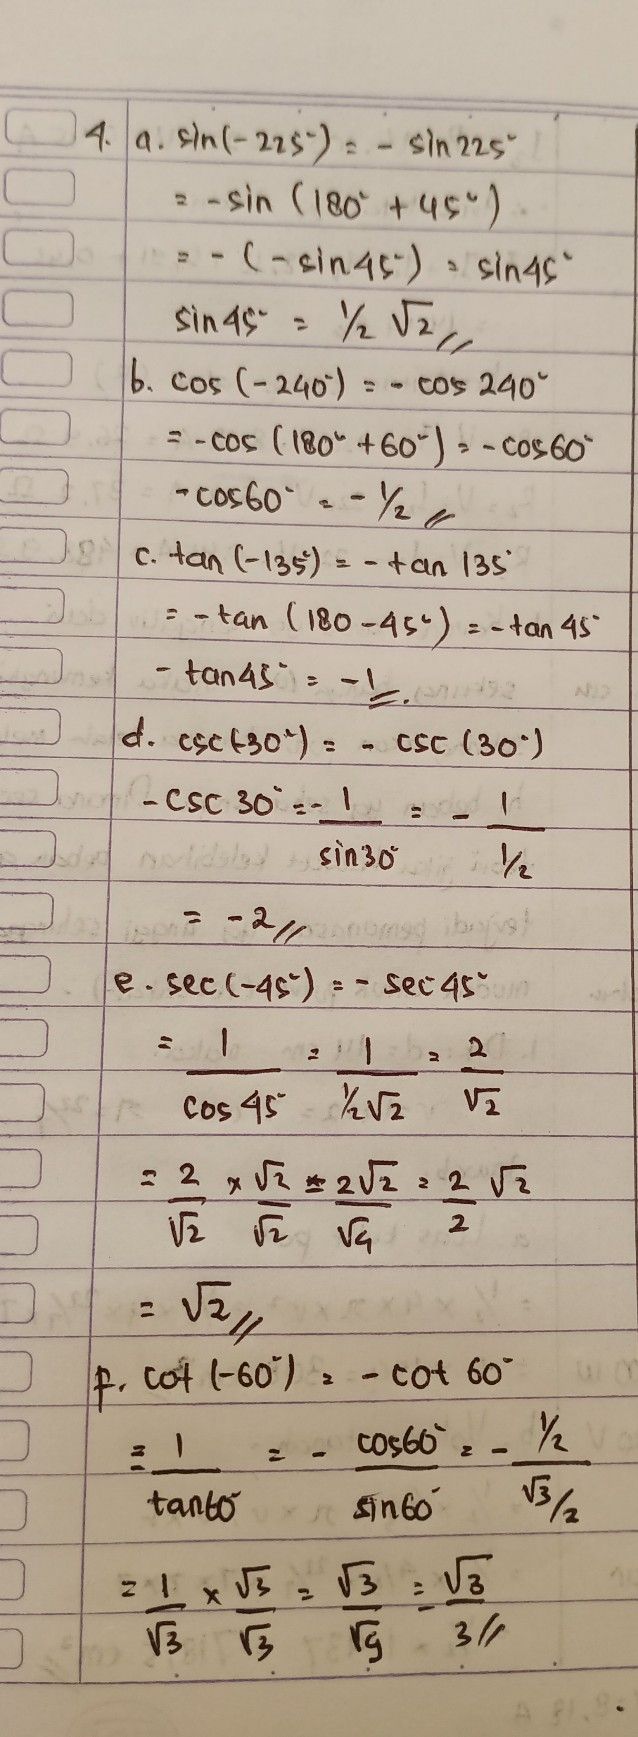 4. a. sin(-225°) = - sin 225°
= -sin (180° + 45°)
= - (-sin 45°) = sin 45°
sin 45° = 1/2 √2 //
b. cos (-240°) = - cos 240°
= -cos (180° + 60°) = -cos 60°
-cos 60° = - 1/2 //
c. tan (-135°) = - tan 135°
= -tan (180 - 45°) = -tan 45°
- tan 45° = -1 //.
d. csc (-30°) = - csc (30°)
-csc 30° = - 1/sin 30° = - 1/(1/2)
= -2 //
e. sec (-45°) = - sec 45°
= 1/cos 45° = 1/(1/2 √2) = 2/√2
= 2/√2 × √2/√2 = 2√2/√4 = 2/2 √2
= √2 //
f. cot (-60°) = - cot 60°
= 1/tan 60° = - cos 60°/sin 60° = - (1/2)/(√3/2)
= 1/√3 × √3/√3 = √3/√9 = √3/3 //